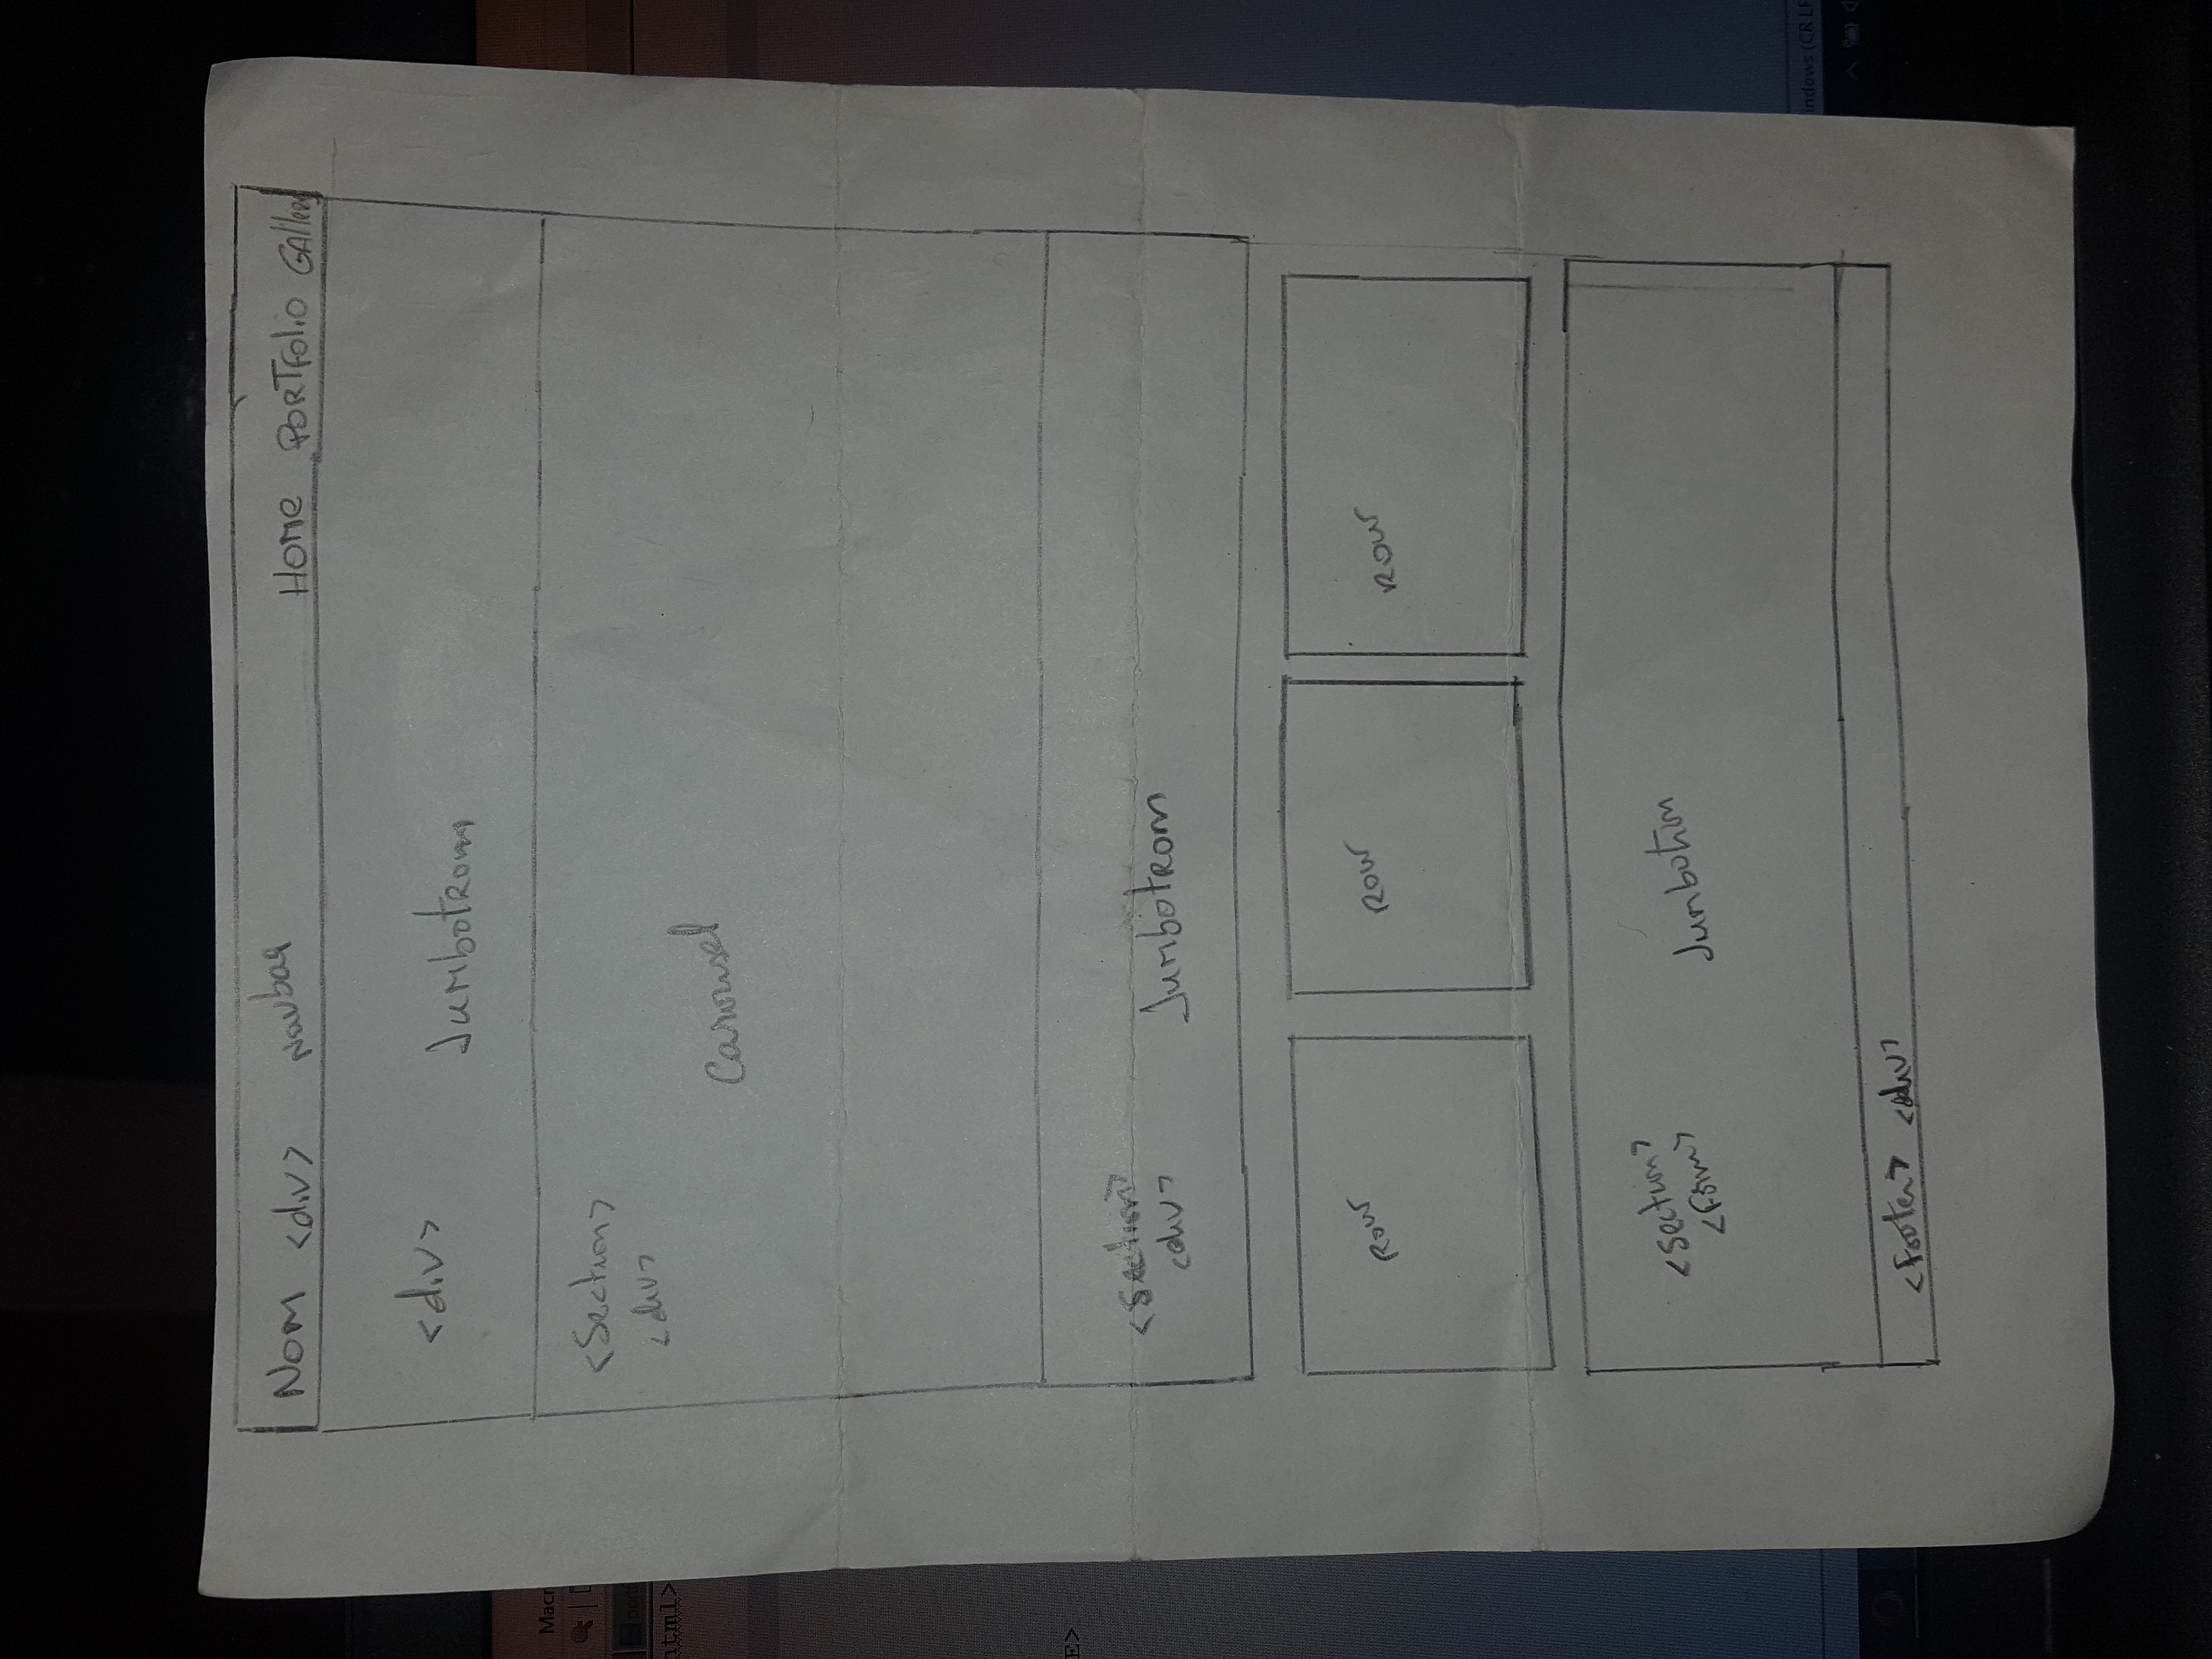 Nom <div> Navbar Home PORTFolio GAllery
<div> Jumbotron
<Section>
<div>
Carousel
<Section>
<div> Jumbotron
ROW ROW ROW
<Section>
<Form> Jumbotron
<Footer> <div>
Macr
html>
E>
indows (CR LF